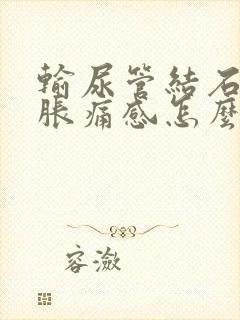 輸尿管結石
脹痛感怎麼
容瀲